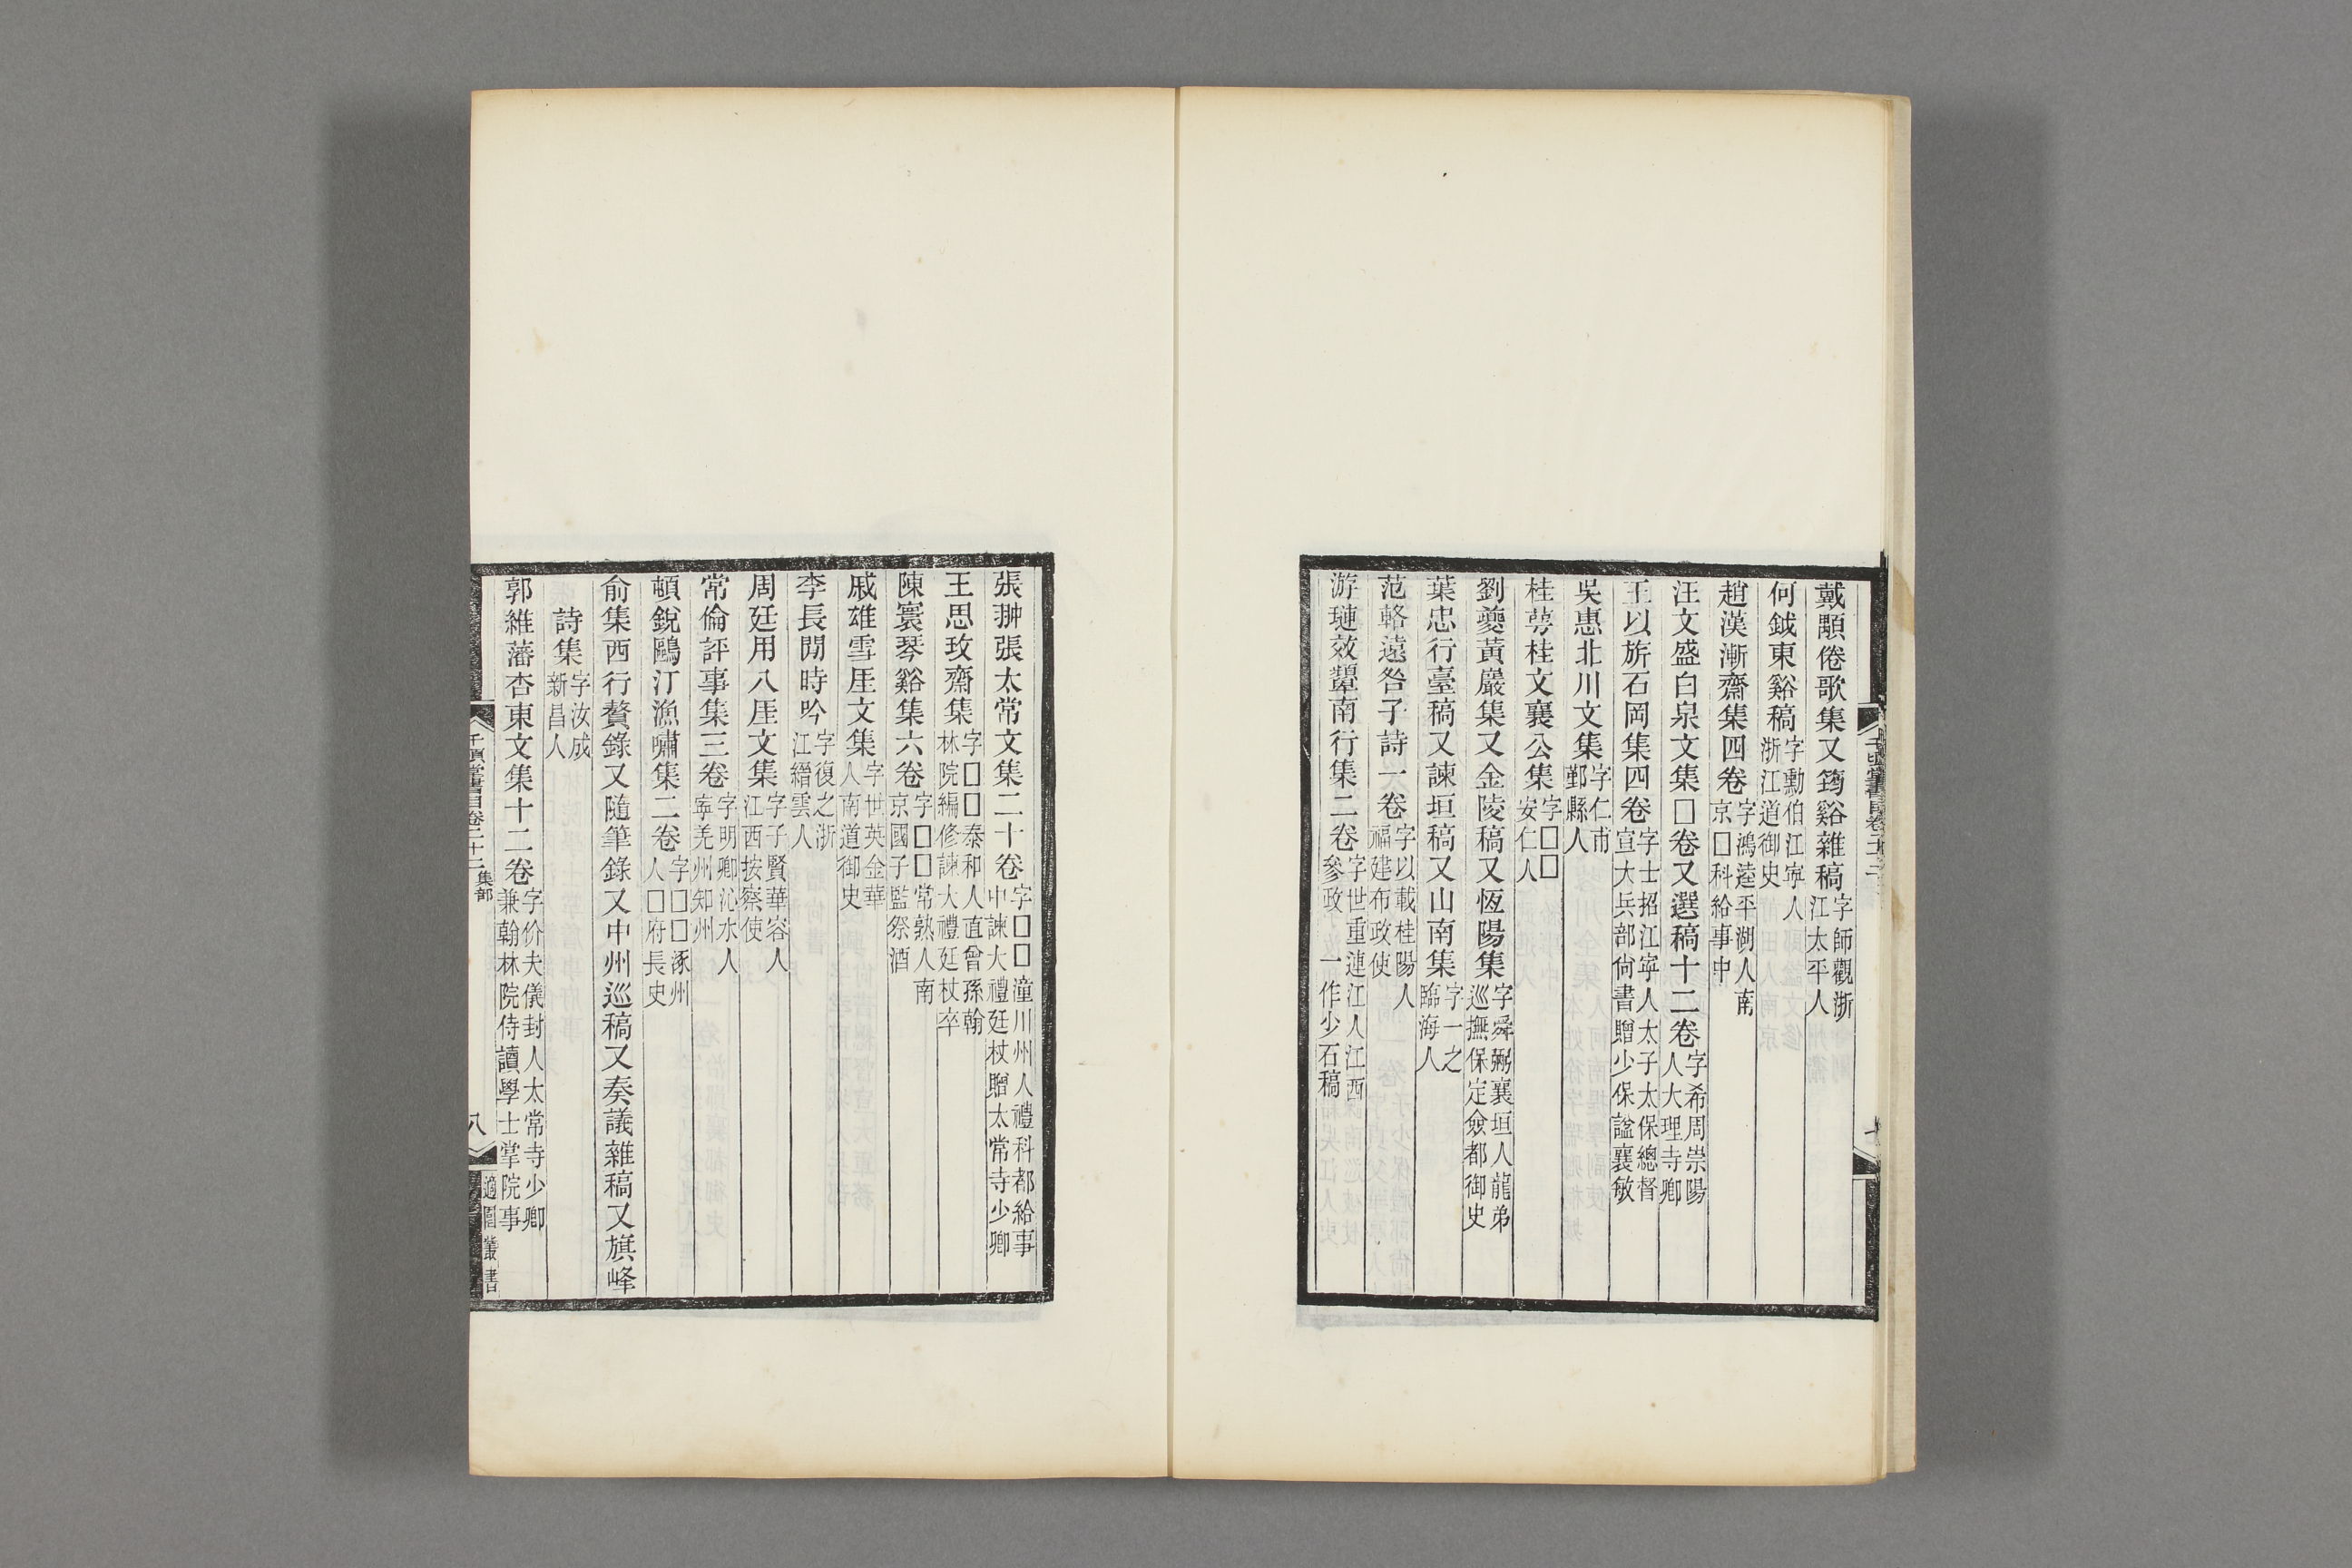 戴顒倦歌集又筠谿雜稿字師觀浙江太平人
何鉞東谿稿字勳伯江寧人浙江道御史
趙漢漸齋集四卷字鴻逵平湖人南京□科給事中
汪文盛白泉文集□卷又選稿十二卷字希周崇陽人大理寺卿
王以旂石岡集四卷字士招江寧人太子太保總督宣大兵部尙書贈少保諡襄敏
吳惠北川文集字仁甫鄞縣人
桂蕚桂文襄公集字□□安仁人
劉夔黃巖集又金陵稿又恆陽集字舜弼襄垣人龍弟巡撫保定僉都御史
葉忠行臺稿又諫垣稿又山南集字一之臨海人
范輅遠咎子詩一卷字以載桂陽人福建布政使
游璉效顰南行集二卷字世重連江人江西參政 一作少石稿
張翀張太常文集二十卷字□□潼川州人禮科都給事中諫大禮廷杖贈太常寺少卿
王思玫齋集字□□泰和人直曾孫翰林院編修諫大禮廷杖卒
陳寰琴谿集六卷字□□常熟人南京國子監祭酒
戚雄雪厓文集字世英金華人南道御史
李長閒時吟字復之浙江縉雲人
周廷用八厓文集字子賢華容人江西按察使
常倫評事集三卷字明卿沁水人寧羌州知州
頓銳鷗汀漁嘯集二卷字□□涿州人□府長史
俞集西行贅錄又隨筆錄又中州巡稿又奏議雜稿又旗峰
詩集字汝成新昌人
郭維藩杏東文集十二卷字价夫儀封人太常寺少卿兼翰林院侍讀學士掌院事
千頃堂書目卷二十二 集部
八
適園叢書